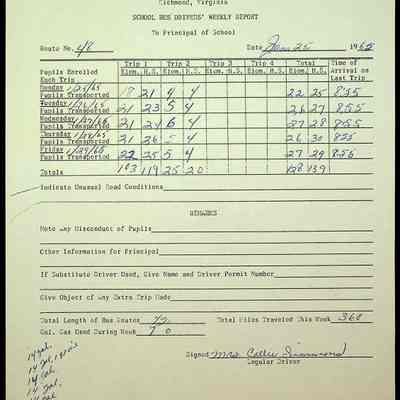 Richmond, Virginia
SCHOOL BUS DRIVERS' WEEKLY REPORT
To Principal of School
Route No. 48 Date Jan 25 1965
Trip 1 Trip 2 Trip 3 Trip 4 Total Time of
Pupils Enrolled Elem. H.S. Elem. H.S. Elem. H.S. Elem. H.S. Elem. H.S. Arrival on
Each Trip Last Trip
Monday 1/25/65
Pupils Transported 18 21 4 4 22 25 8:35
Tuesday 1/26/65
Pupils Transported 21 23 5 4 26 27 8:55
Wednesday 1/27/65
Pupils Transported 21 24 6 4 27 28 8:55
Thursday 1/28/65
Pupils Transported 21 26 5 4 26 30 8:55
Friday 1/29/65
Pupils Transported 22 25 5 4 27 29 8:56
Totals 103 119 25 20 128 139
Indicate Unusual Road Conditions
REMARKS
Note Any Misconduct of Pupils
Other Information for Principal
If Substitute Driver Used, Give Name and Driver Permit Number
Give Object of Any Extra Trip Made
Total Length of Bus Routes 72 Total Miles Traveled This Week 360
Gal. Gas Used During Week 70
14 gal.
Signed Mrs. Callie
Regular Driver
14 gal.
14 gal.